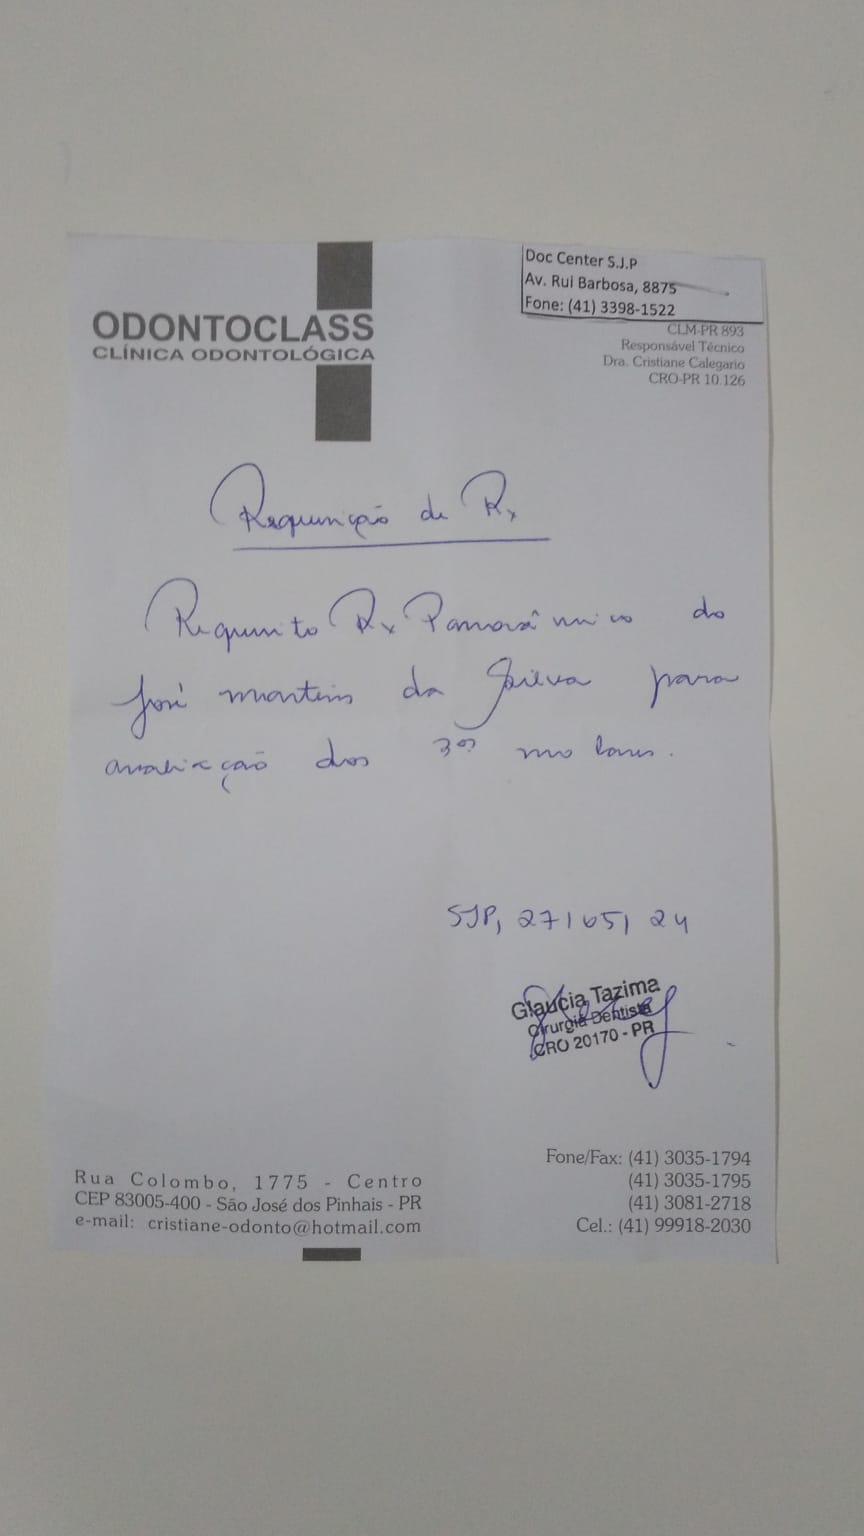 Doc Center S.J.P
Av. Rui Barbosa, 8875
Fone: (41) 3398-1522
ODONTOCLASS
CLÍNICA ODONTOLÓGICA
CLM-PR 893
Responsável Técnico
Dra. Cristiane Calegario
CRO-PR 10.126
Requisição de Rx
Requisito Rx Panorâmico do
José Martins da Silva para
avaliação dos 3ºs molares.
SJP, 27/05/24
Glaucia Tazima
Cirurgiã Dentista
CRO 20170 - PR
Rua Colombo, 1775 - Centro
CEP 83005-400 - São José dos Pinhais - PR
e-mail: cristiane-odonto@hotmail.com
Fone/Fax: (41) 3035-1794
(41) 3035-1795
(41) 3081-2718
Cel.: (41) 99918-2030